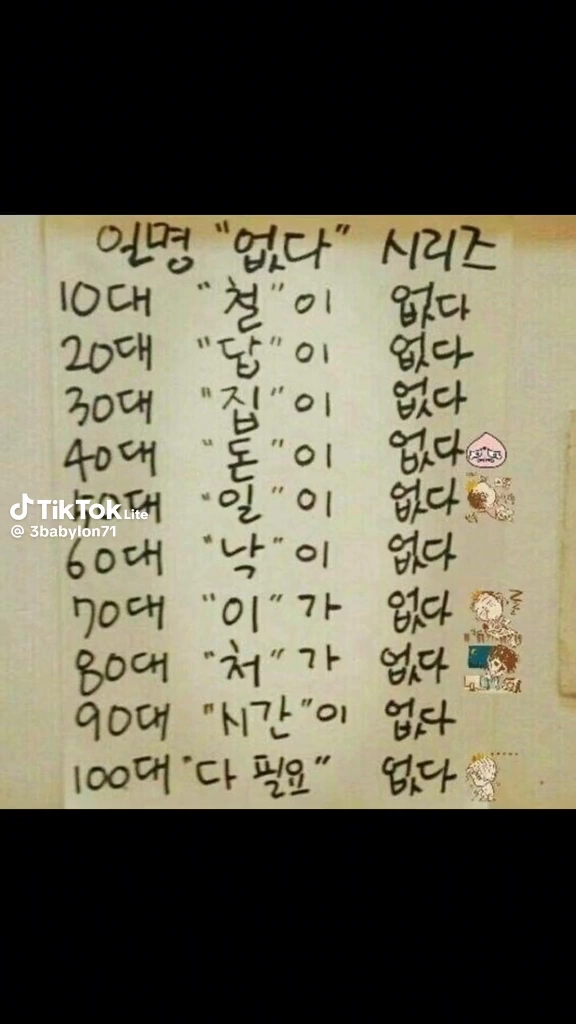 일명 "없다" 시리즈
10대 "철"이 없다
20대 "답"이 없다
30대 "집"이 없다
40대 "돈"이 없다
대 "일"이 없다
TikTok Lite
@ 3babylon71
60대 "낙"이 없다
70대 "이"가 없다
80대 "처"가 없다
90대 "시간"이 없다
100대 "다 필요" 없다